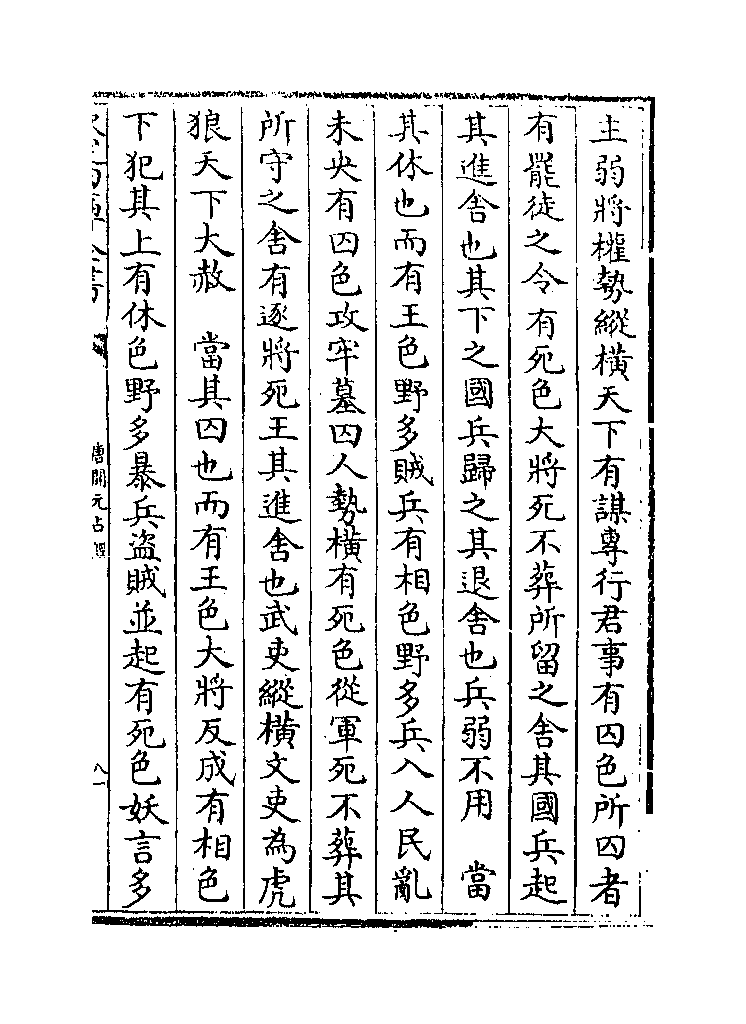 主弱將權勢縱橫天下有謀專行君事有囚色所囚者
有罷徒之令有死色大將死不葬所留之舍其國兵起
其進舍也其下之國兵歸之其退舍也兵弱不用　當
其休也而有王色野多賊兵有相色野多兵入人民亂
未央有囚色攻牢墓囚人勢橫有死色從軍死不葬其
所守之舍有逐將死王其進舍也武吏縱橫文吏為虎
狼天下大赦　當其囚也而有王色大將反成有相色
下犯其上有休色野多暴兵盜賊並起有死色妖言多
唐開元占經
八